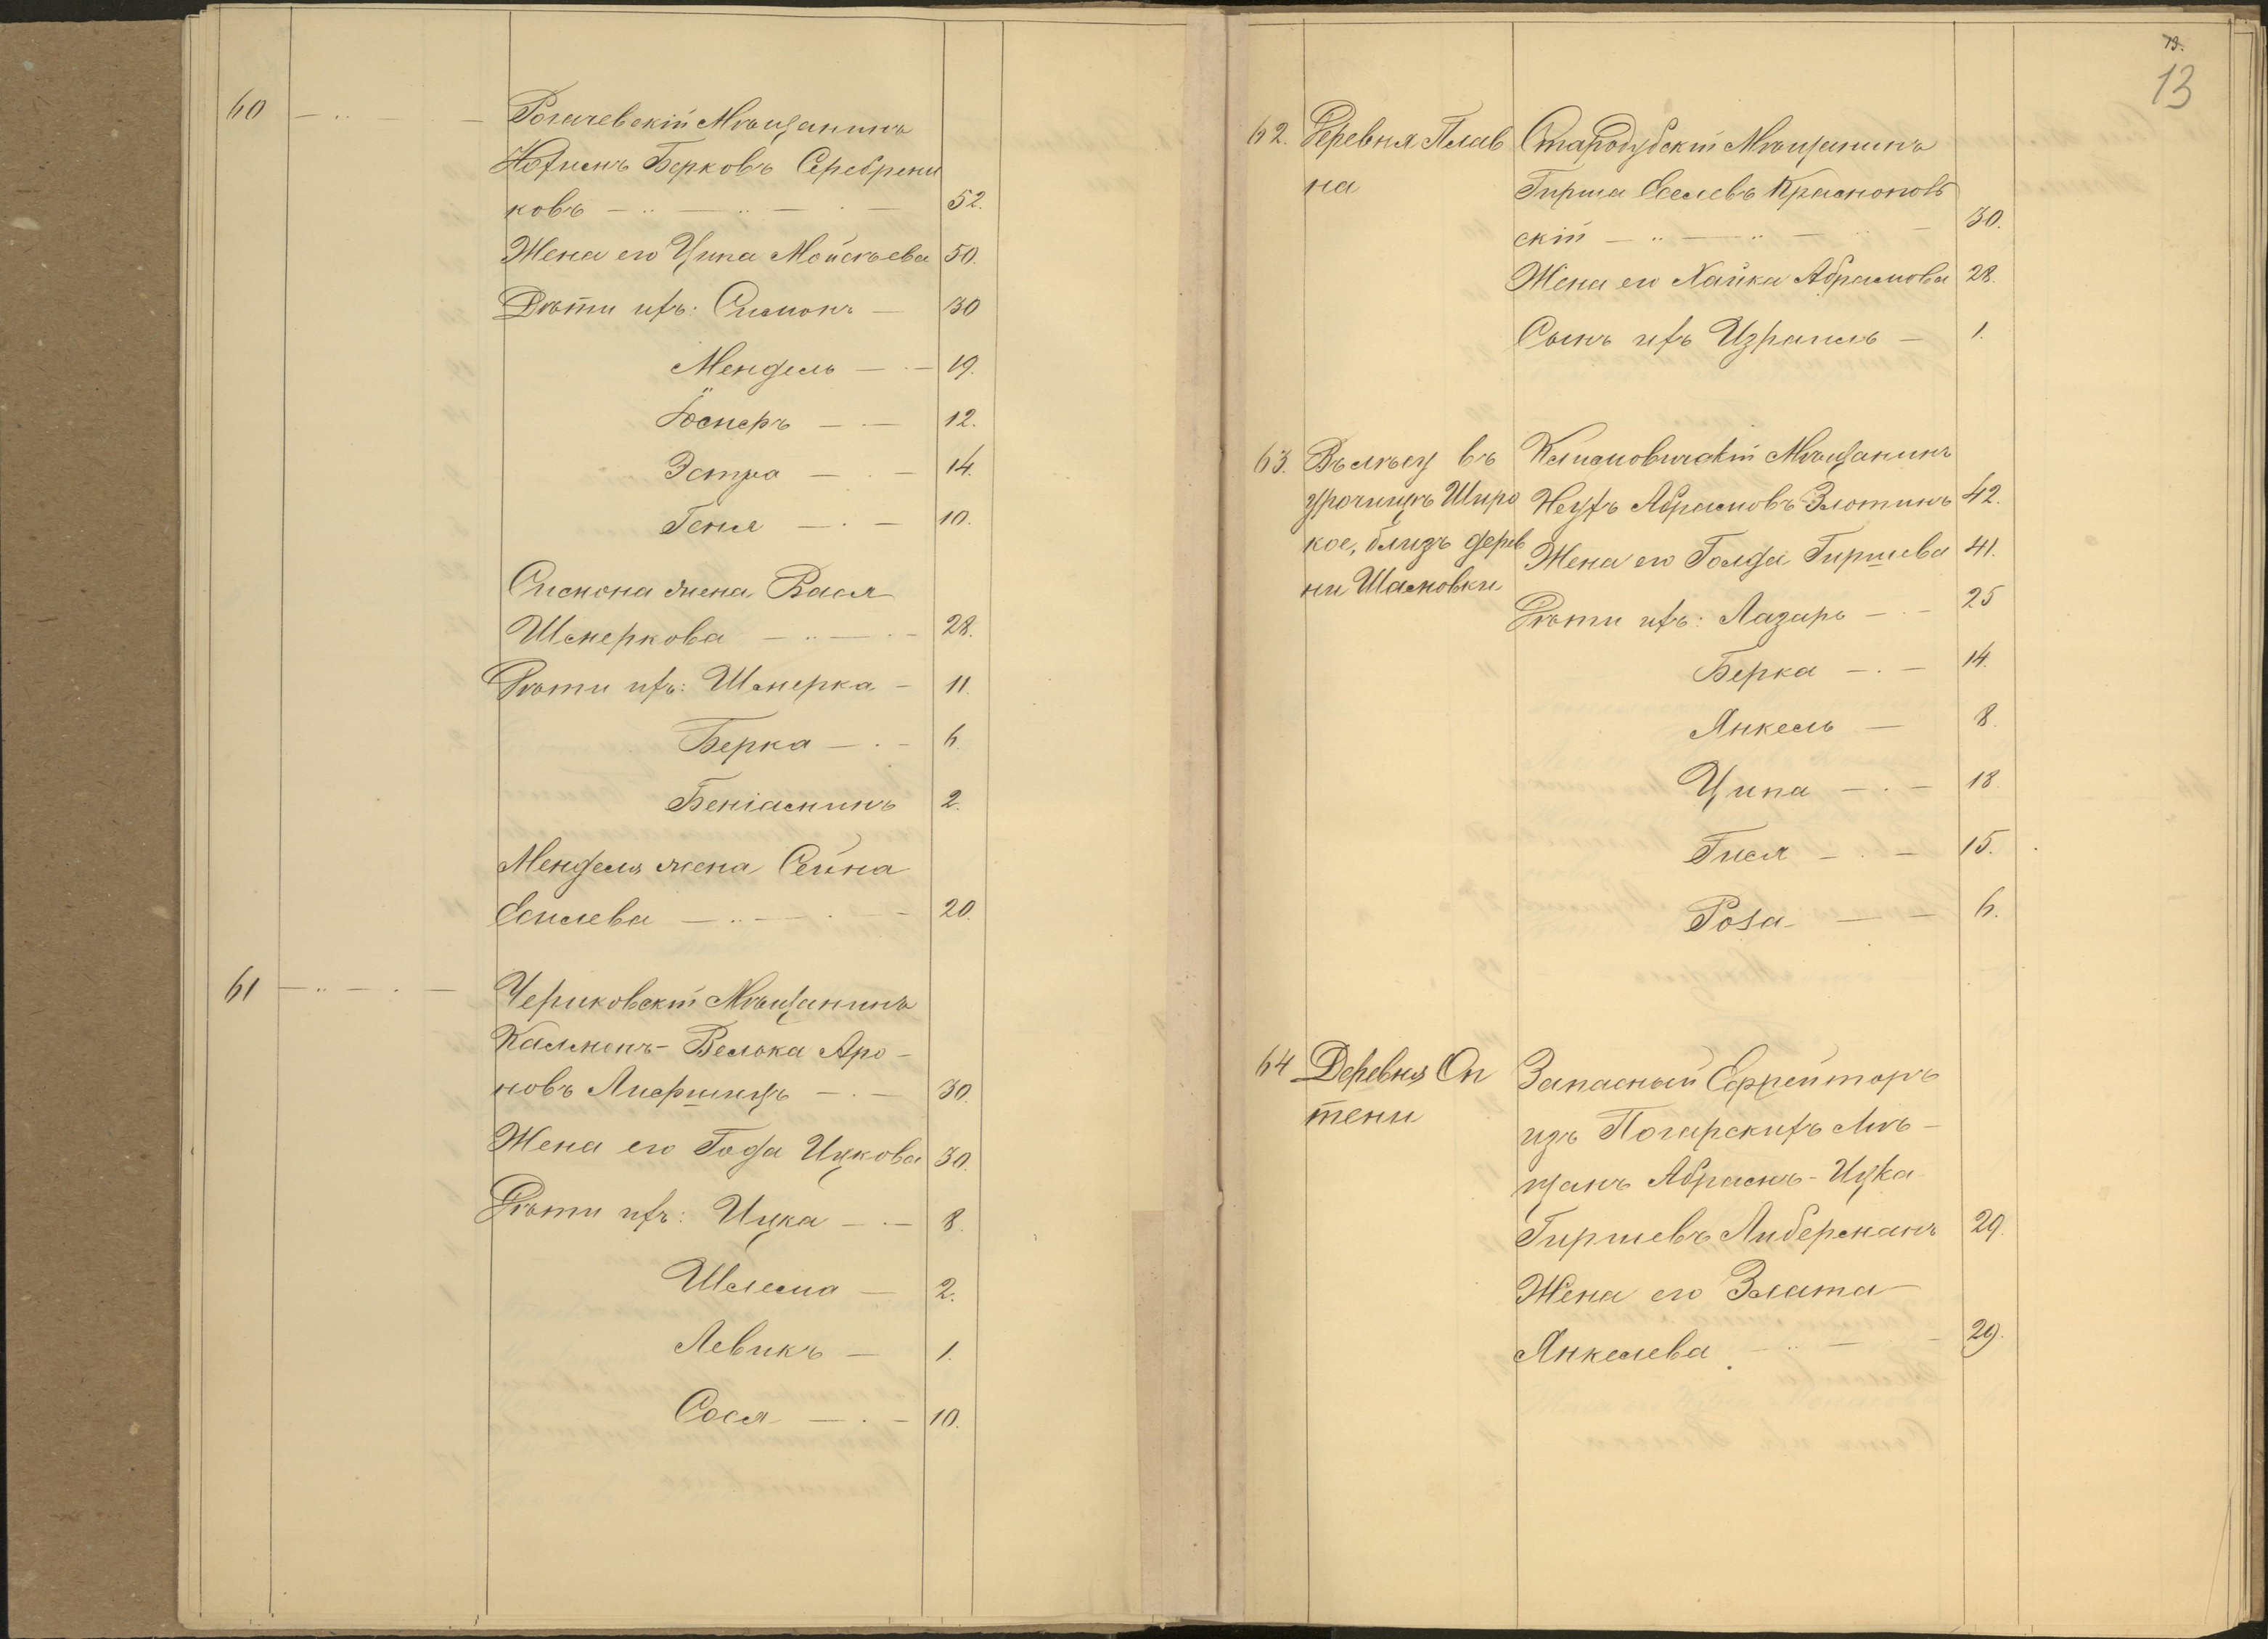 60 — „ — — Рогачевскій Мѣщанинъ
Нохимъ Берковъ Серебрени
ковъ — „ — „ — · — 52.
Жена его Ципа Мойсѣева 50.
Дѣти ихъ: Симонъ — 30
Мендель — · — 19.
— · — 12.
Эстра — · — 14.
Геня — · — 10.
Симона жена Вася
Шмеркова — „ — · — 28.
Дѣти ихъ: Шмерка — 11.
Берка — · — 6.
Беніаминъ 2.
Менделя жена Сейна
— „ — · — 20.
61 — „ — · — Чериковскій Мѣщанинъ
Калмонъ-Велька Аро-
новъ Лифшицъ — · — 30.
Жена его Года Ицкова 30.
Дѣти ихъ: Ицка — · — 8.
Шлема — 2.
Левикъ — 1.
Сося — · — 10.
13.
13
62. Деревня Плав Стародубскій Мѣщанинъ
на Гирша Еселевъ Краснопол
скій — „ — „ — „ — 30.
Жена его Хайка Абрамова 28.
Сынъ ихъ Израиль — 1.
63. Въ лѣсу въ Климовичскій Мѣщанинъ
урочищѣ Широ Неухъ Абрамовъ Злотинъ 42.
кое, близъ дерев Жена его Голда Гиршева 41.
ни Шамовки
Дѣти ихъ: Лазарь — · — 25
Берка — · — 14.
Янкель — 8.
Ципа — · — 18.
Гися — · — 15.
Роза — — 6.
64 Деревня Оп Запасный Ефрейторъ
тени изъ Погарскихъ Мѣ-
щанъ Абрамъ-Ицка
Гиршевъ Либерманъ 29.
Жена его Злата
Янкелева — „ — · — 29.